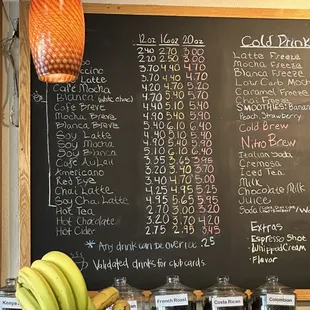 12oz 16oz 20oz
2.40 2.70 3.00
2.20 2.50 3.00
3.70 4.40 4.70
ccino 3.70 4.40 4.70
Cafe Mocha 4.20 4.70 5.20
Blanca (white choc) 4.20 4.70 5.20
Cafe Breve 4.40 5.10 5.40
Mocha Breve 4.90 5.40 5.90
Blanca Breve 5.40 6.10 6.40
Soy Latte 4.40 5.10 5.40
Soy Mocha 4.90 5.40 5.90
Soy Blanca 4.90 5.40 5.90
Cafe Au Lait 3.35 3.65 3.95
Americano 3.20 3.40 3.70
Red Eye 3.40 3.70 4.00
Chai Latte 4.25 4.95 5.25
Soy Chai Latte 4.95 5.65 5.95
Hot Tea 2.70 3.00 3.20
Hot Chocolate 2.95 3.45 3.95
Hot Cider 2.95 3.45 3.95
* Any drink can be over ice .25
Validated drinks for club cards.
Cold Drink
Latte Freeze
Mocha Freeze
Blanca Freeze
Low Carb Moch
Caramel Freeze
Chai Freeze
SMOOTHIES: Banana
Peach, Strawberry
Cold Brew
Nitro Brew
Italian Soda
Cremosa
Iced Tea
Milk
Chocolate Milk
Juice
Extras
- Espresso Shot
- Whipped Cream
- Flavor
French Roast
Costa Rican
Colombian